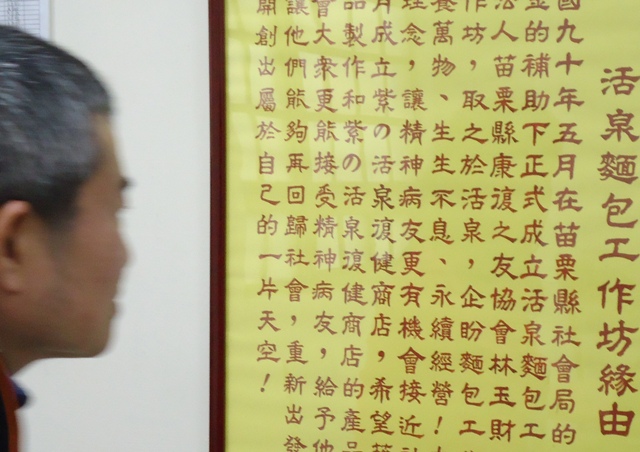 活泉麵包工作坊緣由
國九十年五月在苗栗縣社會局的
金的補助下正式成立活泉麵包工
法人苗栗縣康復之友協會林玉財
作坊，取之於活泉，企盼麵包工
養萬物、生生不息、永續經營！
理念，讓精神病友更有機會接近社
月成立紫の活泉復健商店，希望藉
品製作和紫の活泉復健商店的產品
會大眾更能接受精神病友，給予他
讓他們能夠再回歸社會，重新出發
開創出屬於自己的一片天空！